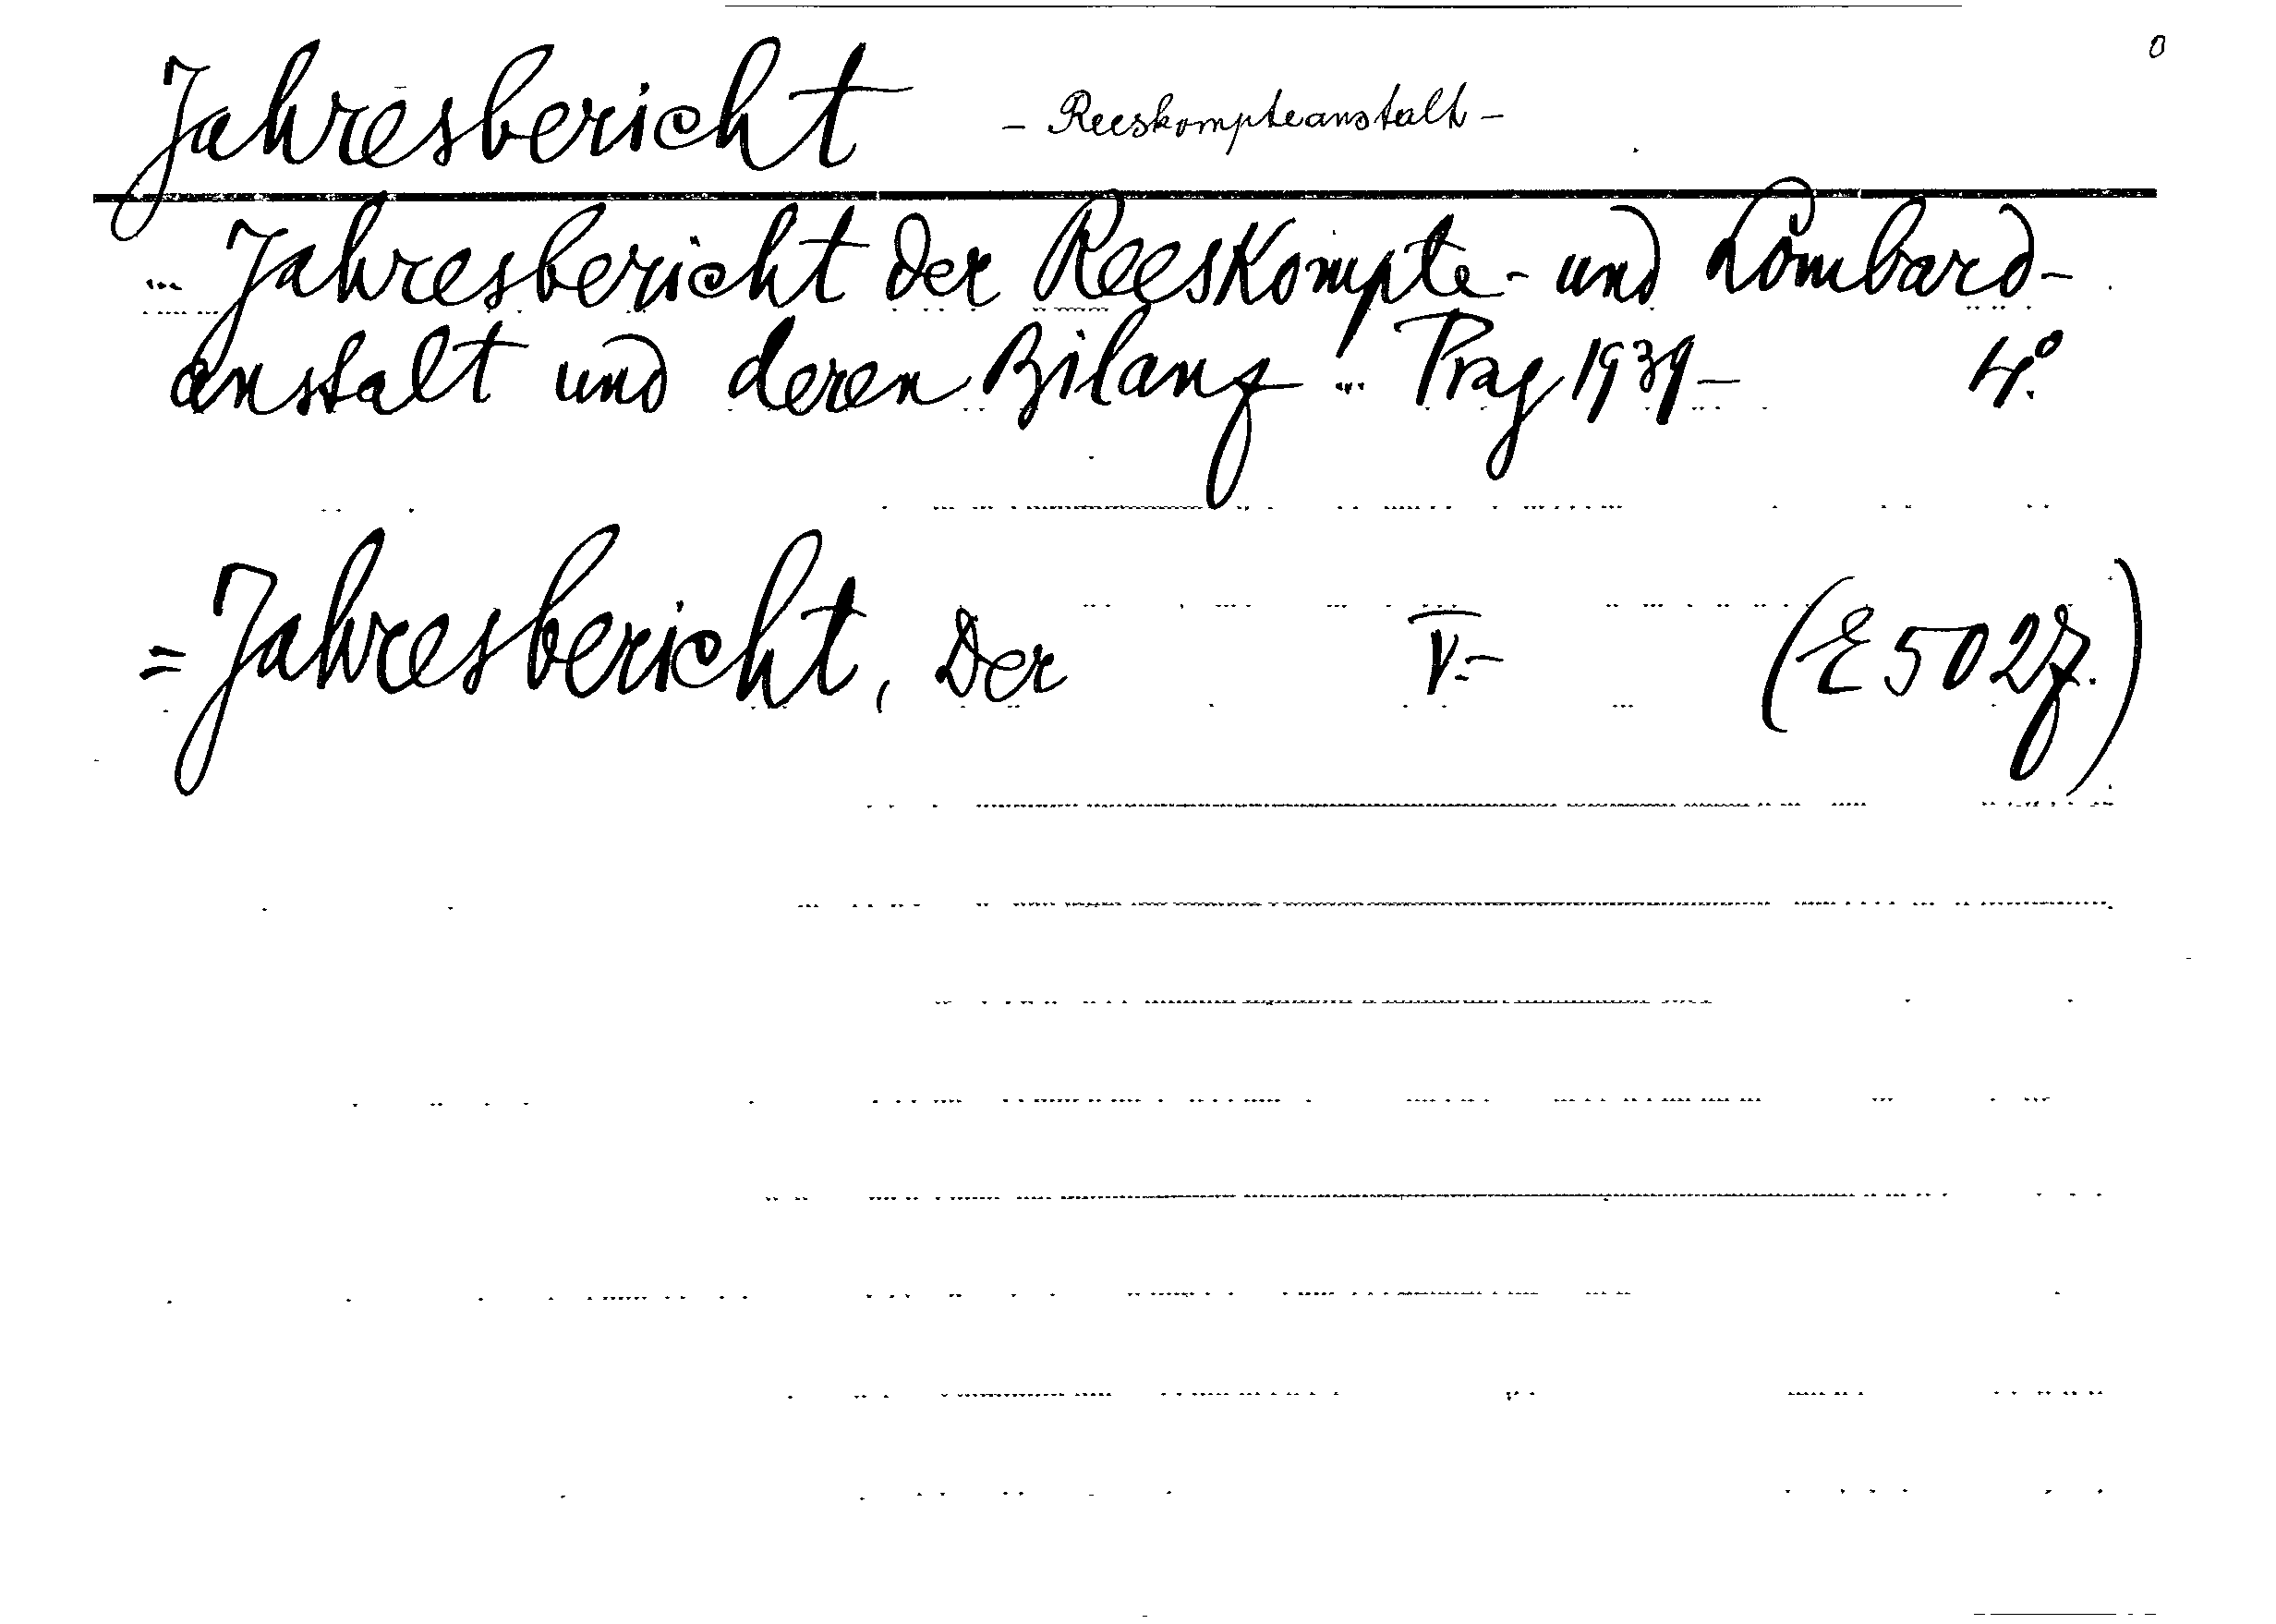 Jahresbericht - Reeskompteanstalt -
... Jahresbericht der Reeskompte- und Lombard-
anstalt und deren Bilanz ... Prag 1939- 4°.
= Jahresbericht, Der V.- (E 502 f.)